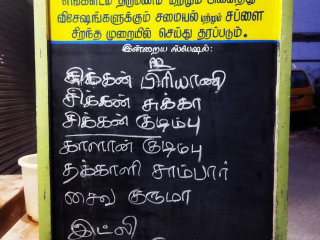 எங்களிடம் திருமணம் மற்றும் அனைத்து
விசேஷங்களுக்கும் சமையல் மற்றும் சப்ளை
சிறந்த முறையில் செய்து தரப்படும்.
இன்றைய ஸ்பெஷல்:
சிக்கன் பிரியாணி
சிக்கன் சுக்கா
சிக்கன் குடிம்பு
காளான் குடிம்பு
தக்காளி சாம்பார்
சைவ குருமா
இட்லி